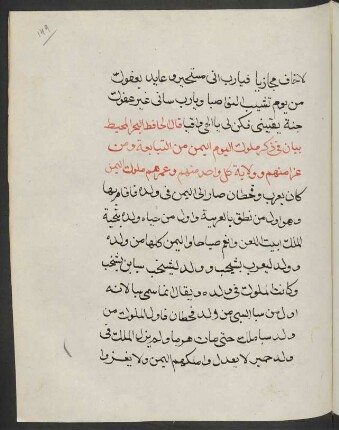 ١٤٩
لا تخاف مجازيا فيارب انى مستجير وعايد بعفوك
من يوم تشيب النواصيا ويارب سالى غير عفوك
جنة يقينى فكن لى بالهى واقيا قال الحافظ البحر المحيط
بيان فى ذكر ملوك اليوم اليمن من التبابعة ومن
غزا منهم وولاية كل واحد منهم وعمرهم ملوك اليمن
كان يعرب وقحطان صار الى اليمن فى ولده فاقام بها
وهو اول من نطق بالعربية واول من حياه ولده بتحية
الملك ابيت اللعن وانعم صباحا واليمن كلها من ولده
وولد ليعرب يشجب وولد ليشجب سبا بن يشجب
وكانت الملوك فى ولده ويقال انما سمى سبا لانه
اول من سبا السبى من ولد قحطان فاول الملوك من
ولد سبا ملك حتى مات هرما ولم يزل الملك فى
ولد حمير لا يعدل وا ملكهم اليمن ولا يغزوا